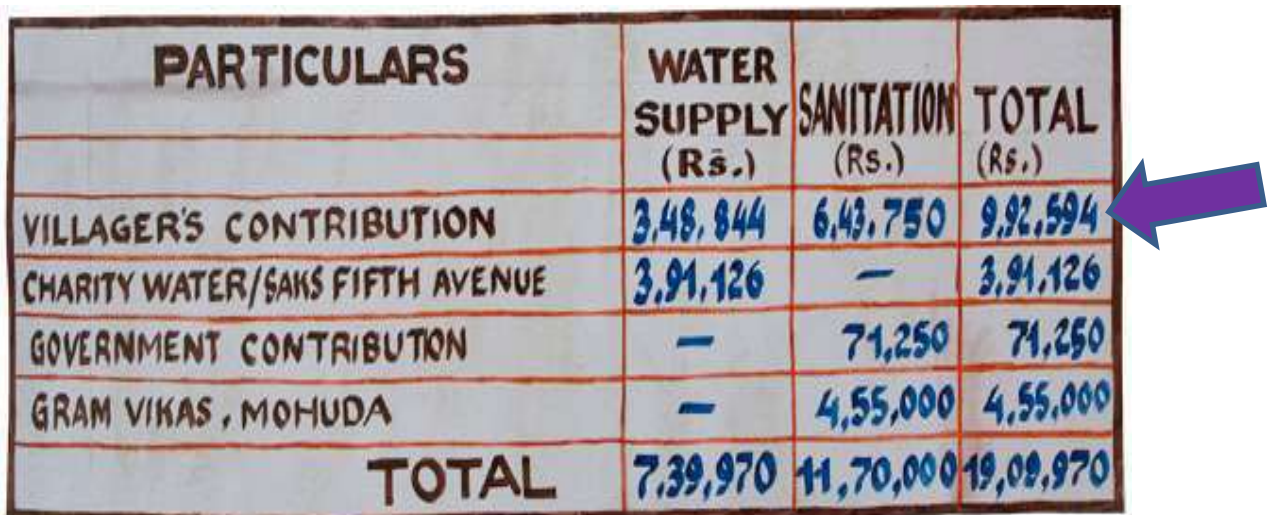 PARTICULARS
WATER SUPPLY (Rs.)
SANITATION (Rs.)
TOTAL (Rs.)
VILLAGER'S CONTRIBUTION 3,48,844 6,43,750 9,92,594
CHARITY WATER/SAKS FIFTH AVENUE 3,91,126 — 3,91,126
GOVERNMENT CONTRIBUTION — 71,250 71,250
GRAM VIKAS, MOHUDA — 4,55,000 4,55,000
TOTAL 7,39,970 11,70,000 19,09,970